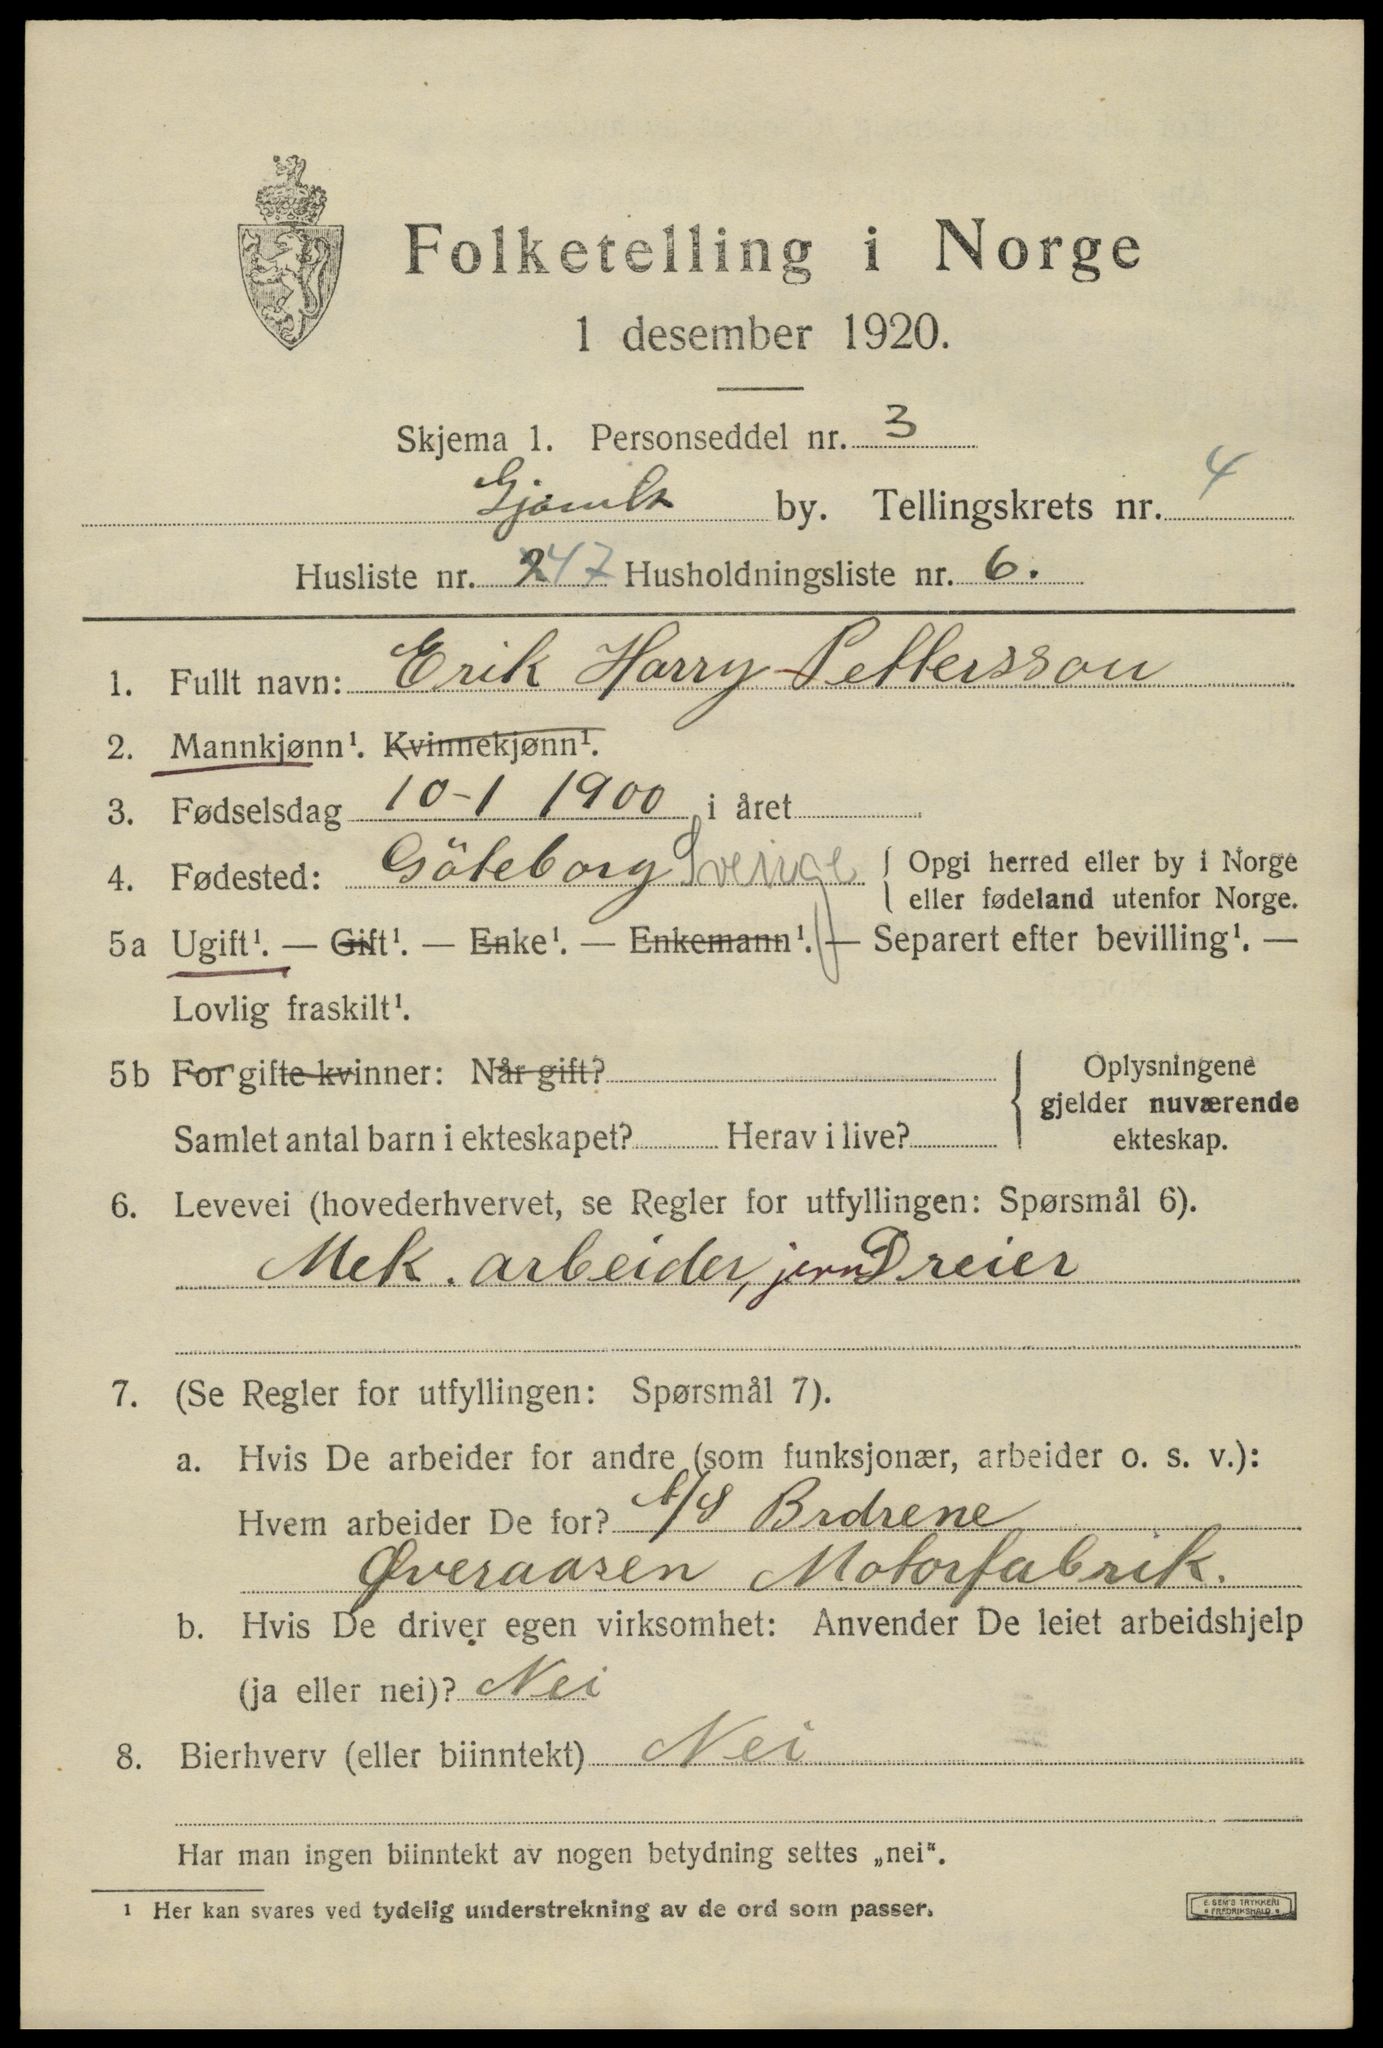 Folketelling i Norge
1 desember 1920.
Skjema 1. Personseddel nr. 3
Gjøvik by. Tellingskrets nr. 4
Husliste nr. 247 Husholdningsliste nr. 6.
1. Fullt navn: Erik Harry Pettersson
2. Mannkjønn¹. Kvinnekjønn¹.
3. Fødselsdag 10-1 1900 i året
4. Fødested: Göteborg Sverige { Opgi herred eller by i Norge
eller fødeland utenfor Norge.
5a Ugift¹. — Gift¹. — Enke¹. — Enkemann¹. — Separert efter bevilling¹. —
Lovlig fraskilt¹.
5b For gifte kvinner: Når gift?
Samlet antal barn i ekteskapet? Herav i live?
Oplysningene
gjelder nuværende
ekteskap.
6. Levevei (hovederhvervet, se Regler for utfyllingen: Spørsmål 6).
Mek. arbeider, jern Dreier
7. (Se Regler for utfyllingen: Spørsmål 7).
a. Hvis De arbeider for andre (som funksjonær, arbeider o. s. v.):
Hvem arbeider De for? A/S Brdrene
Øveraasen Motorfabrik.
b. Hvis De driver egen virksomhet: Anvender De leiet arbeidshjelp
(ja eller nei)? Nei
8. Bierhverv (eller biinntekt) Nei
Har man ingen biinntekt av nogen betydning settes „nei".
¹ Her kan svares ved tydelig understrekning av de ord som passer.
E. SEM'S TRYKKERI
FREDRIKSHALD